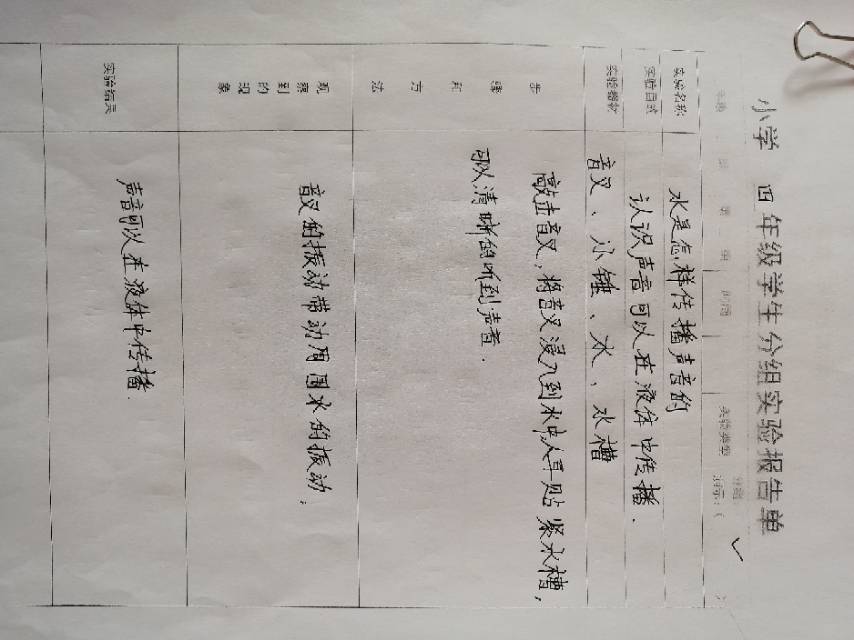 小学 四年级学生分组实验报告单
年级 班 第 组 时间 实验类型 分组
演示:( ✓ )
实验名称 水是怎样传播声音的
实验目的 认识声音可以在液体中传播.
实验器材 音叉、小锤、水、水槽
步骤和方法 敲击音叉,将音叉浸入到水中人耳贴紧水槽,
可以清晰的听到声音.
观察到的现象 音叉的振动带动周围水的振动,
实验结果 声音可以在液体中传播.